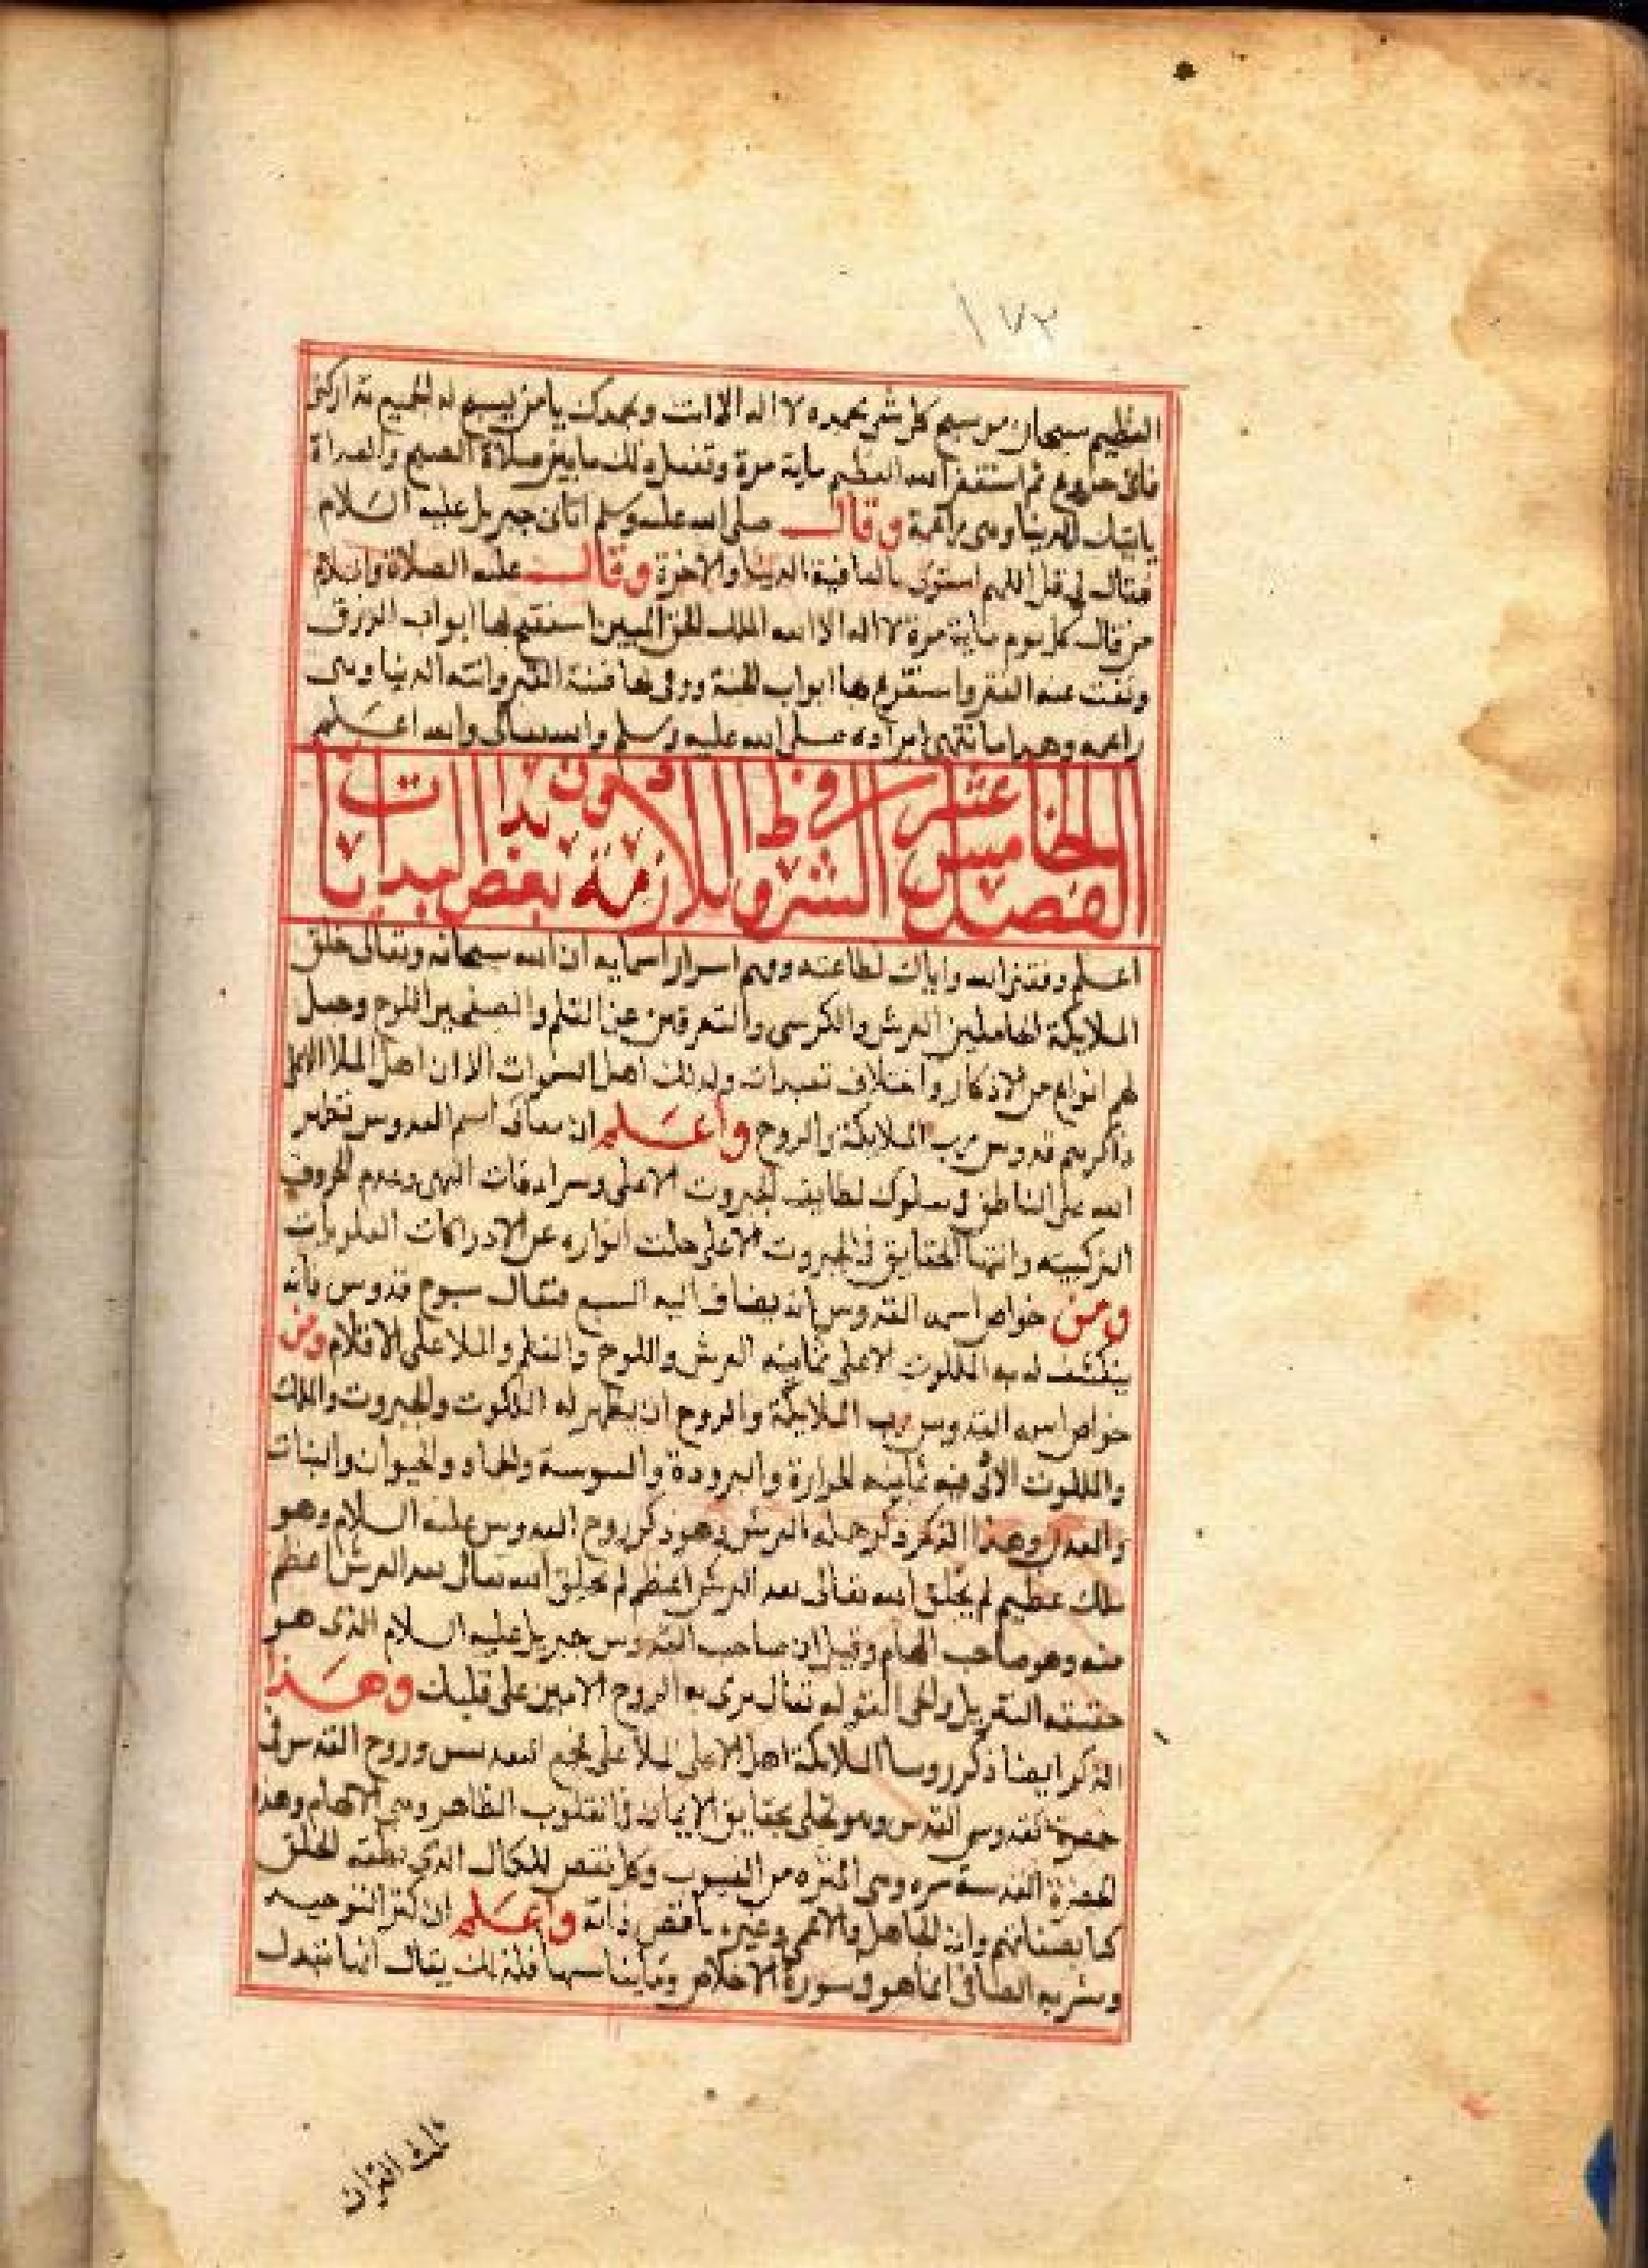 ١٧٣
العظيم سبحان من سبح كل شي بحمده لا اله الا انت وبحمدك يا من يسبح له الجميع تداركني
فانى جزوع ثم استغفر الله العظيم ماية مرة وتفعل ذلك مابين صلاة الصبح والغداة
ياتيك الدنيا وهى راغمة وقال صلى الله عليه وسلم اتانى جبريل عليه السلام
فقال لى قل اللهم استرنى بالعافية الدنيا والاخرة وقال عليه الصلاة والسلام
من قال كل يوم ماية مرة لا اله الا الله الملك الحق المبين استفتح بها ابواب الرزق
ونفت عنه الفقر واستقرع بها ابواب الجنة ووقى بها فتنة القبر واتته الدنيا وهى
راغمه وهذا ما انتهى ايراده صلى الله عليه وسلم والله تعالى والله اعلم
الفصل الخامس عشر في الشروط اللازمة لبعض البدايات
اعلم وفقنى الله واياك لطاعته وفهم اسرار اسمايه ان الله سبحانه وتعالى خلق
الملايكة الحاملين العرش والكرسى عن القلم اللوح وجعل
لهم انواع من الاذكار واختلاف تعبدات وكذلك اهل السموات الا ان اهل الملا الاعلى
ذاكرهم قدوس رب الملايكة والروح واعلم ان اسم القدوس تظهر
الله على الناطق فى سلوك لطايف الجبروت الاعلى وسرادقات البهى وعدم الحروف
التركيبيه وانتها الحقايق فى الجبروت الاعلى جلت انواره عن الادراكات العلويات
ومن خواص اسمه القدوس ان يضاف اليه السبع فتقال سبوح قدوس فانه
ينكشف له به الملكوت الاعلى ثمانيه العرش واللوح والقلم والملا على الاقلام ومن
خواص اسمه القدوس رب الملايكة والروح ان يظهر له الملكوت والجبروت والملك
والملكوت ثمانيه الحرارة والبرودة واليبوسة والجماد والحيوان والنبات
والمعدن وهذا الذكر ذكر حملة العرش وهو ذكر روح القدوس عليه السلام وهو
ملك عظيم لم يخلق الله تعالى بعد العرش اعظم لم يخلق الله تعالى بعد العرش اعظم
منه وهو صاحب الهام وقيل ان صاحب القدوس جبريل عليه السلام الذى هو
حقيقه التنزيل والوحى لقوله تعالى نزل به الروح الامين على قلبك وهذا
الذكر ايضا ذكر روسا الملايكة اهل الاعلى وروح القدس فى
حضرة القدس وهو تجلى بحقايق الايمان فى القلوب الظاهر وهى الالهام وهذه
الحضرة القدسية منزه من العيوب وكل نقص للكمال الذى الخلق
كما بصفاتهم وان الجاهل والاعمى وغيره ناقص ذاته واعلم ان كنز التوحيد
وشربه الصافى انما هو فى سورة الاخلاص وما يناسبها فلذلك يقال انها تعدل
ثلث القران